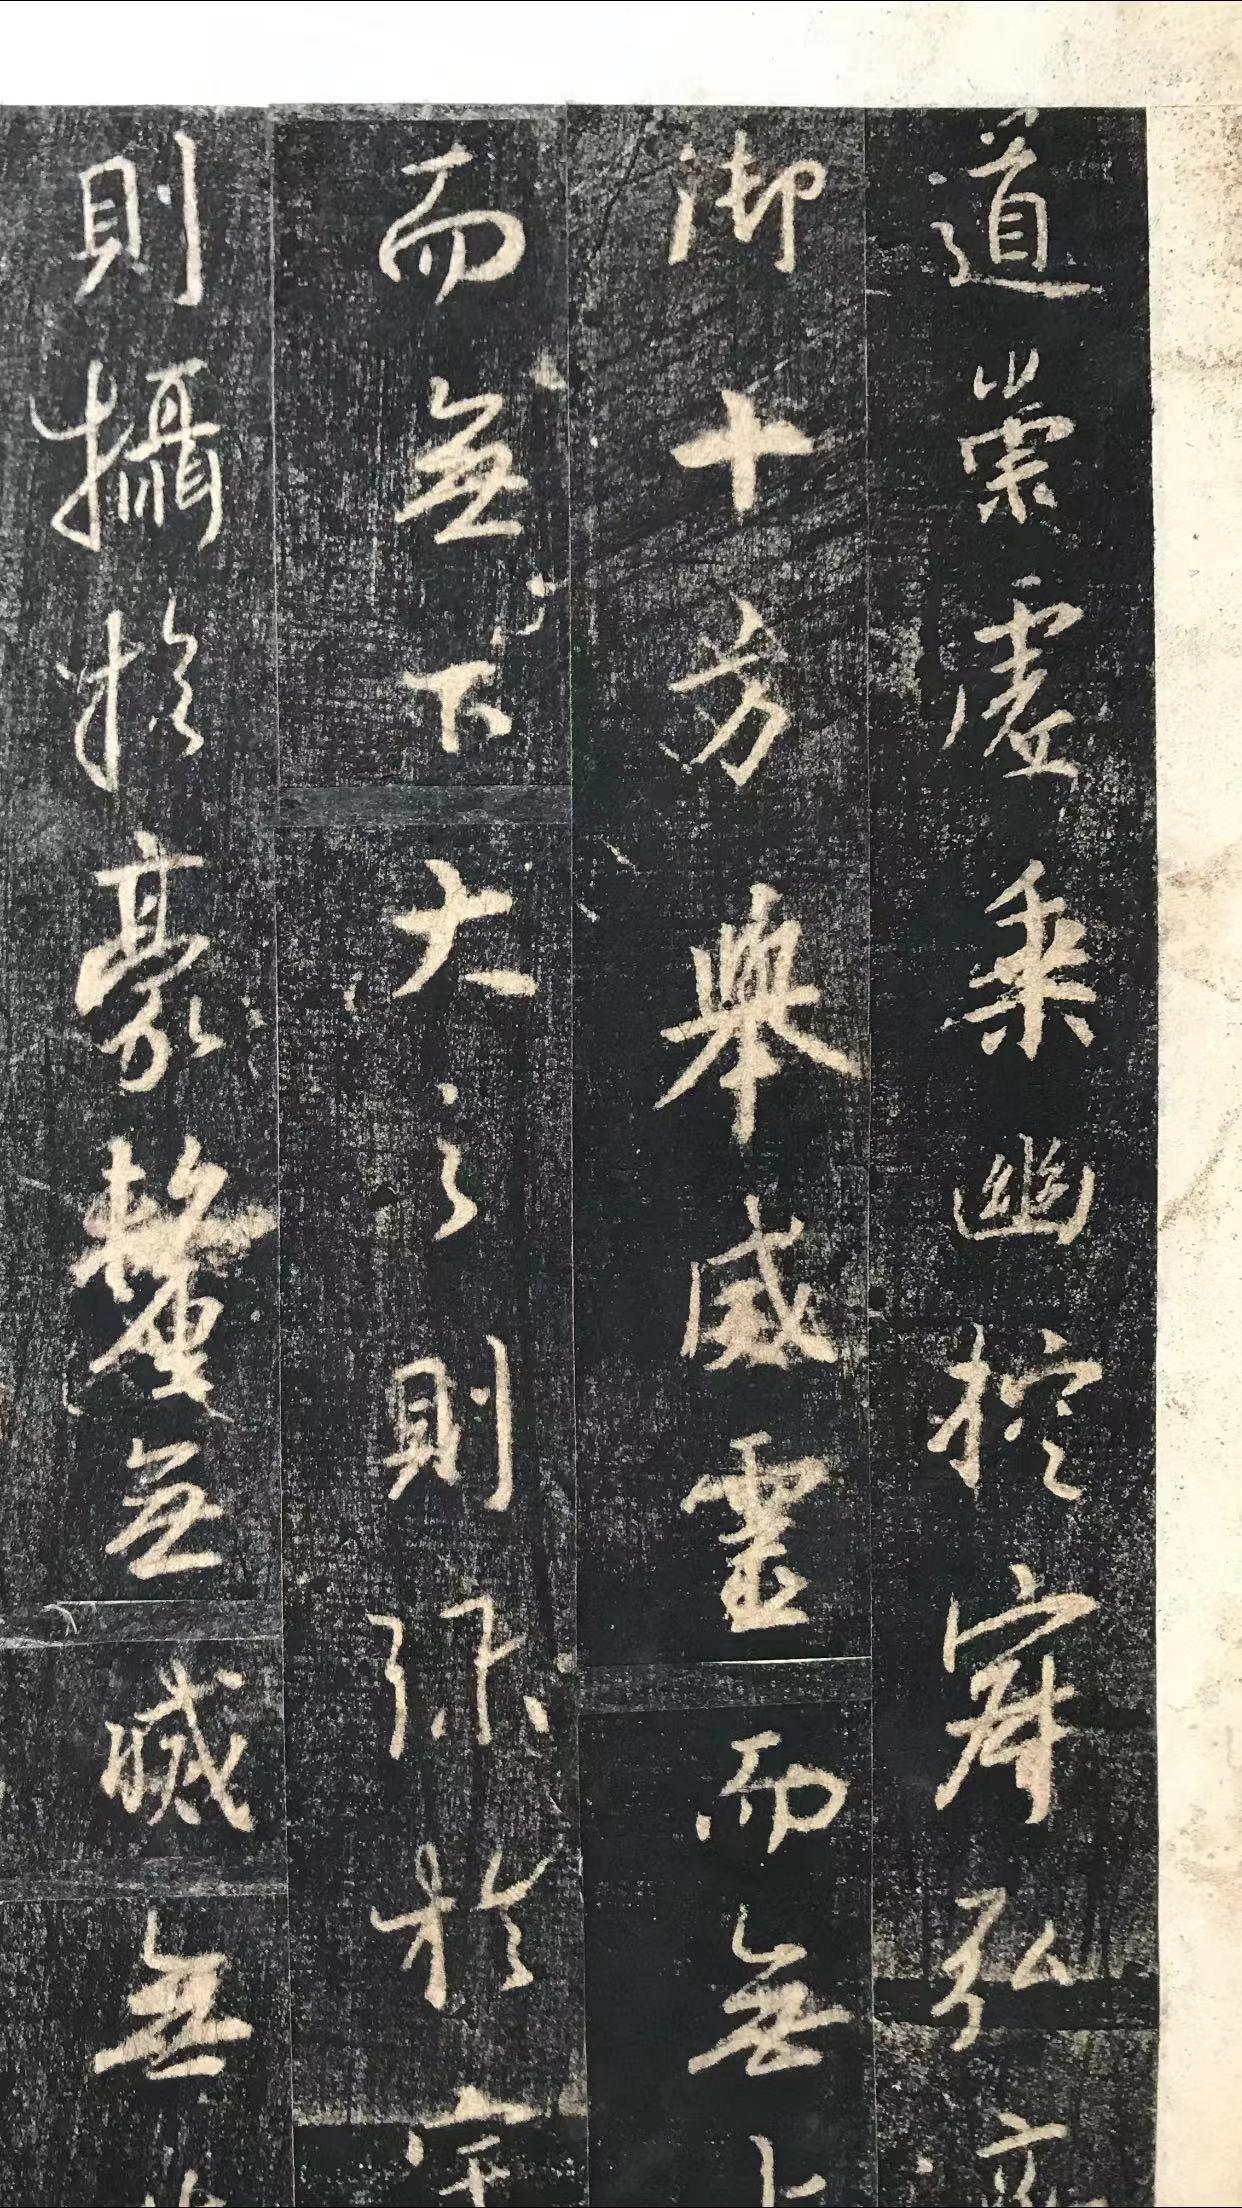 道崇虛乘幽控寂弘
御十方舉威靈而無上
而無下大之則弥於宇
則攝於豪釐無滅無